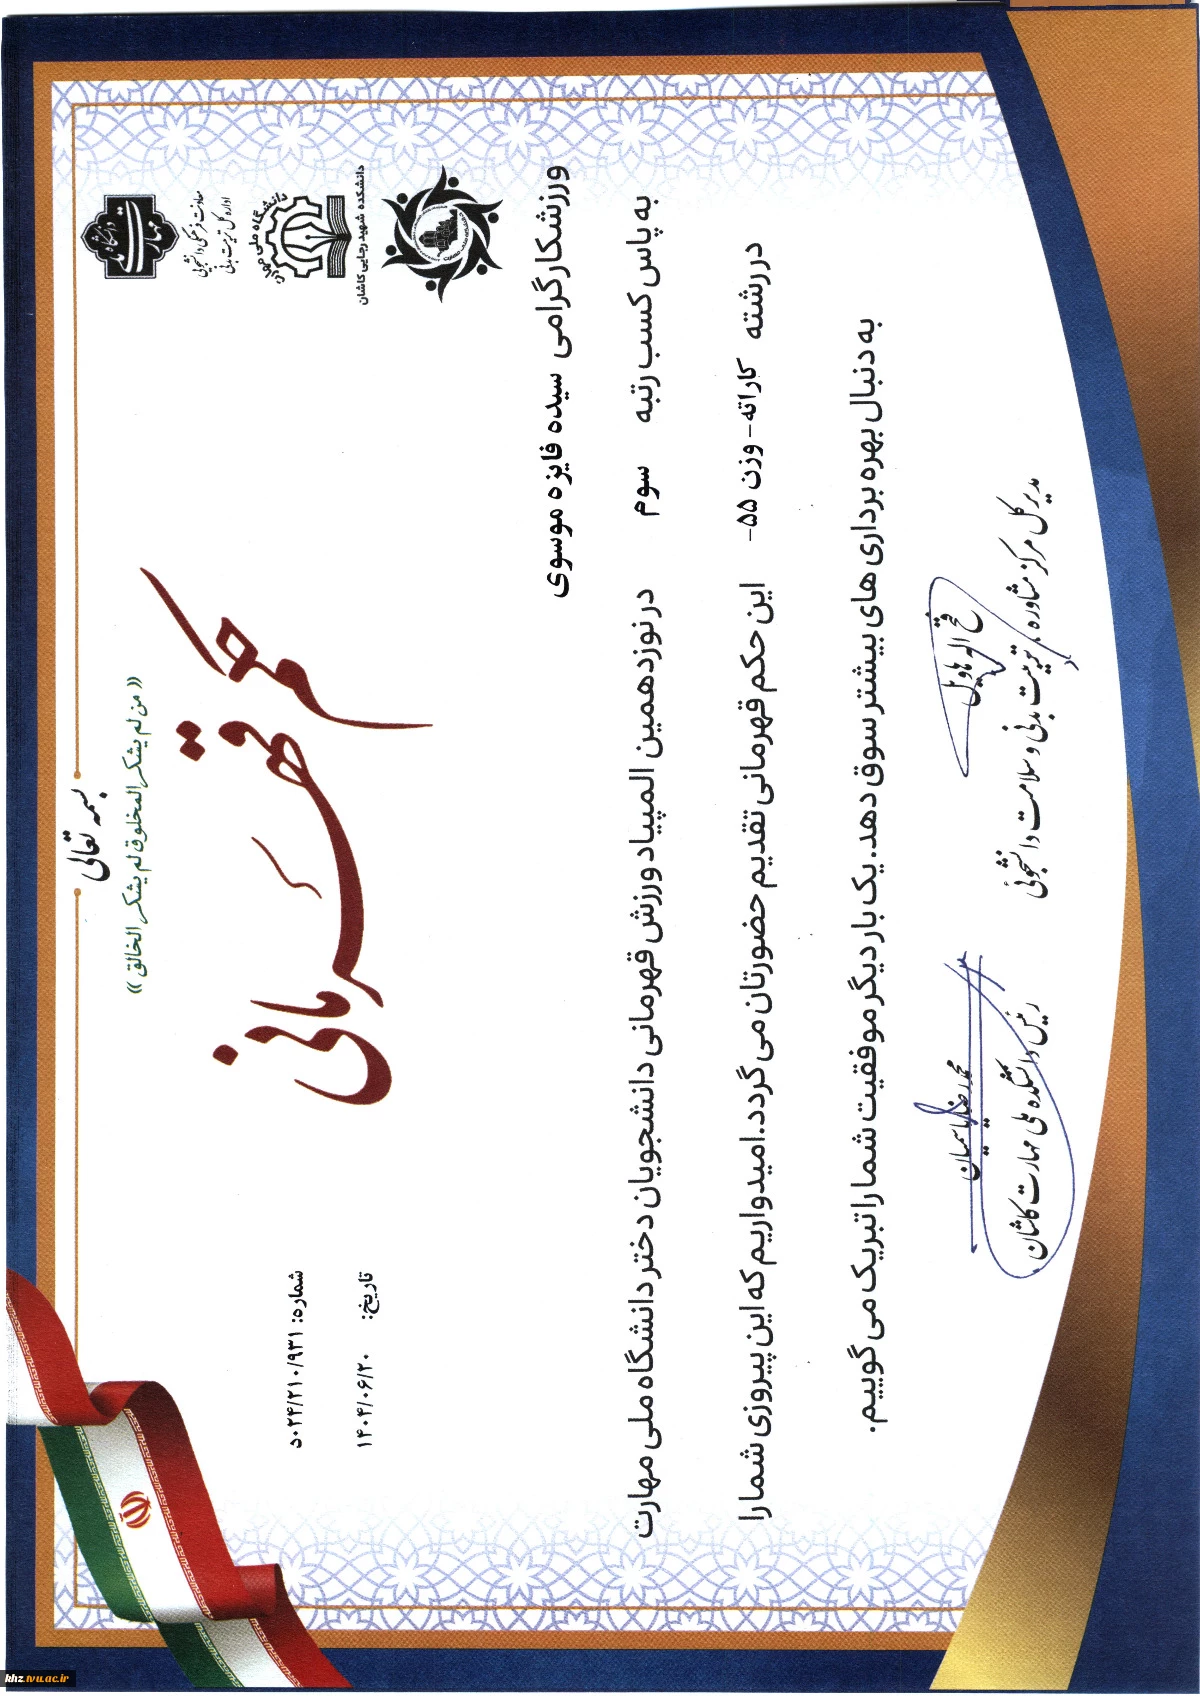 بسمه تعالی
«من لم یشکر المخلوق لم یشکر الخالق»
حکم قهرمانی
دانشگاه ملی مهارت
معاونت فرهنگی و دانشجویی
اداره کل تربیت بدنی
دانشگاه ملی مهارت
دانشکده شهید رجایی کاشان
شماره: ۵۰۲۴/۲۱۰/۹۳۱د
تاریخ: ۱۴۰۴/۰۶/۲۰
ورزشکار گرامی سیده فایزه موسوی
به پاس کسب رتبه سوم در نوزدهمین المپیاد ورزش قهرمانی دانشجویان دختر دانشگاه ملی مهارت
در رشته کاراته - وزن ۵۵- این حکم قهرمانی تقدیم حضورتان می گردد. امیدواریم که این پیروزی شما را
به دنبال بهره برداری های بیشتر سوق دهد. یک بار دیگر موفقیت شما را تبریک می گوییم.
فتح اله هاویل
مدیر کل مرکز مشاوره، تربیت بدنی و سلامت دانشجوئی
محمدرضا قاسمیان
رئیس دانشکده ملی مهارت کاشان
khz.tvu.ac.ir